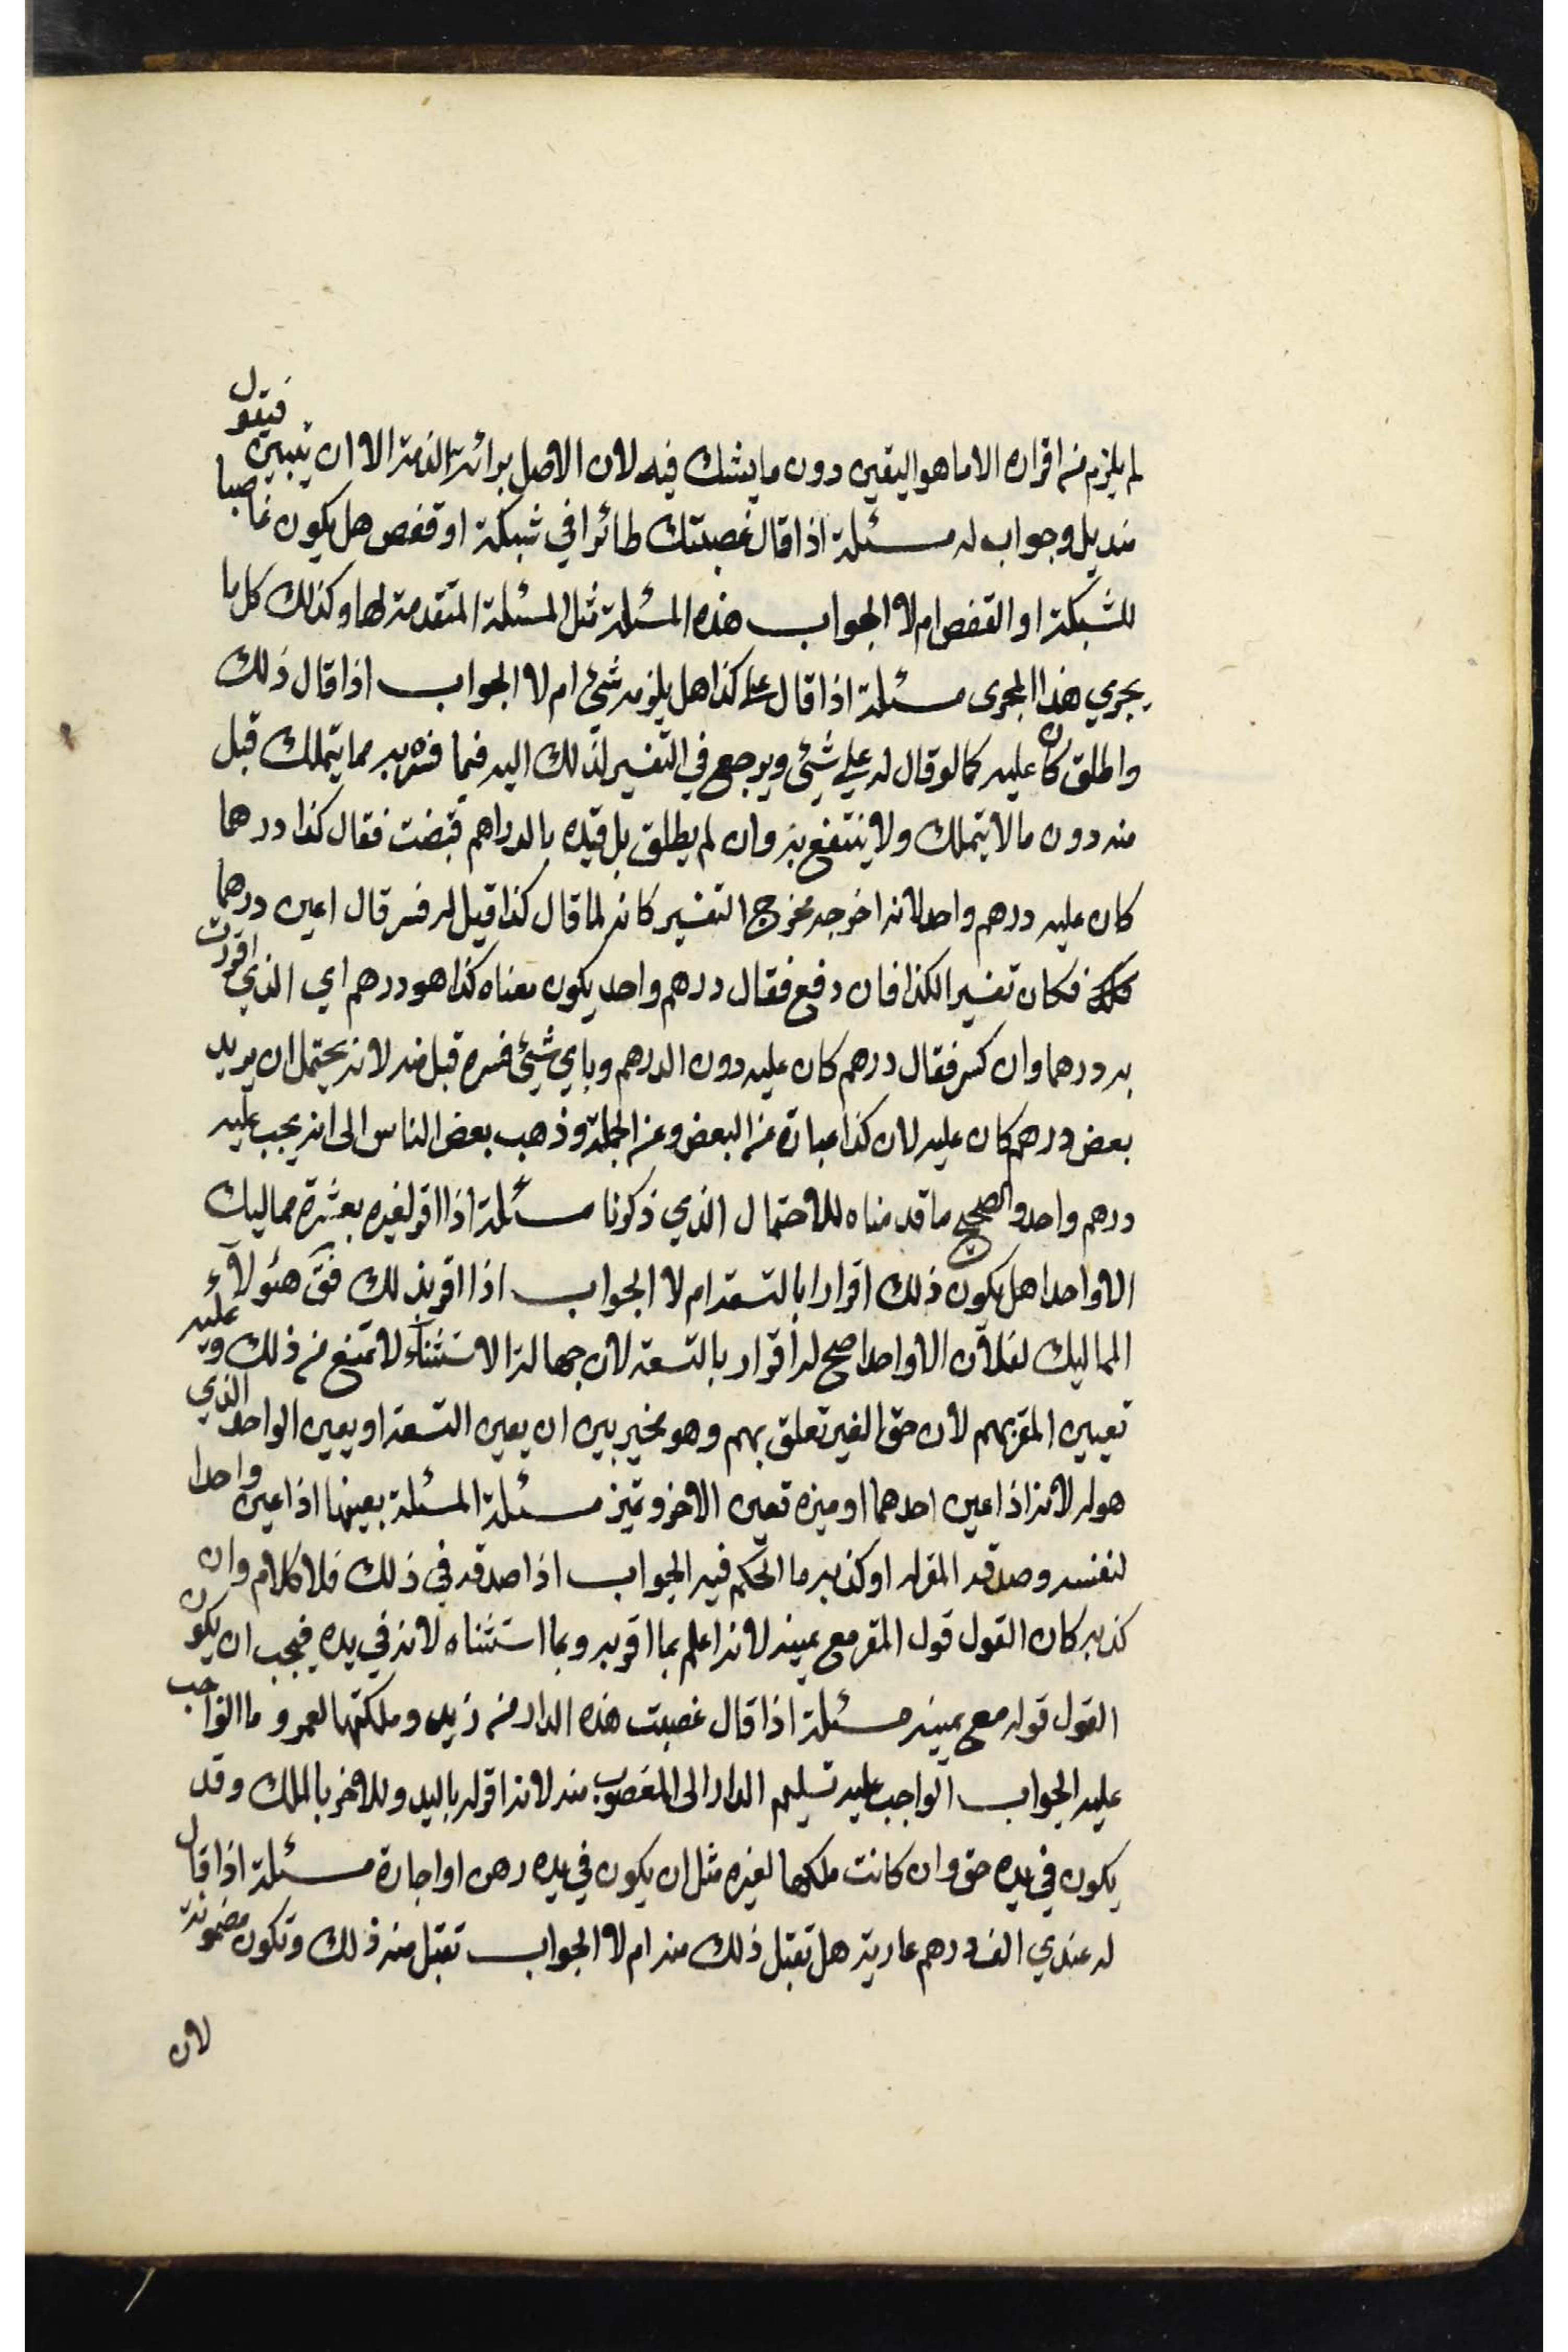 لم يلزم من اقراره الا ما هو اليقين دون ما يشك فيه لان الاصل برائة الذمة الا ان يبين فيقول
منديل وجواب له مسئلة اذا قال غصبتك طائرا في شبكة او قفص هل يكون غاصبا
للشبكة او القفص ام لا الجواب هذه المسئلة مثل المسئلة المتقدمة لها وكذلك كل ما
يجري هذا المجرى مسئلة اذا قال علي كذا هل يلزمه شيئ ام لا الجواب اذا قال ذلك
واطلق كان عليه كما لو قال له علي شيئ ويرجع في التفسير لذلك اليه فبما فسره به مما يتملك قبل
منه دون ما لا يتملك ولا ينتفع به وان لم يطلق بل قيده بالدراهم فنصبت فقال كذا درهما
كان عليه درهم واحد لانه اخرجه مخرج التفسير كانه لما قال كذا قيل له فسر قال اعين درهما
فكان تفسيرا لكذا فان رفع فقال درهم واحد يكون معناه كذا هو درهم اي الذي اقررت
به درهما وان كسر فقال درهم كان عليه دون الدرهم وباي شيئ فسره قبل منه لانه يحتمل ان يريد
بعض درهم كان عليه لان كذا عبارة عن البعض وعن الجملة وذهب بعض الناس الى انه يجب عليه
درهم واحد والصحيح ما قدمناه للاحتمال الذي ذكرنا مسئلة اذا اقر لغيره بعشرة مماليك
الا واحدا هل يكون ذلك اقرارا بالتسعة ام لا الجواب اذا اقر بذلك فق هئولآء
المماليك لفلان الا واحدا صح له اقرار بالتسعة لان جهالة الاستثناء لا تمنع من ذلك وعليه
تعيين المقر بهم لان حق الغير تعلق بهم وهو مخير بين ان يعين التسعة او يعين الواحد الذي
هو له لانه اذا عين احدهما او ميزه تعين الاخر وتميز مسئلة المسئلة بعينها اذا عين واحدا
لنفسه وصدقه المقر له او كذبه ما الحكم فيه الجواب اذا صدقه في ذلك فلا كلام وان
كذبه كان القول قول المقر مع يمينه لانه اعلم بما اقر به وبما استثناه لانه في يده فيجب ان يكون
القول قوله مع يمينه مسئلة اذا قال غصبت هذه الدار من زيد وملكتها لعمرو ما الواجب
عليه الجواب الواجب عليه تسليم الدار الى المغصوب منه لانه اقر له باليد وللاخر بالملك وقد
يكون في يده حق وان كانت ملكها لغيره مثل ان يكون في يده رهن او اجارة مسئلة اذا قال
له عندي الف درهم عارية هل تقبل ذلك منه ام لا الجواب تقبل منه ذلك وتكون مضمونة
لان